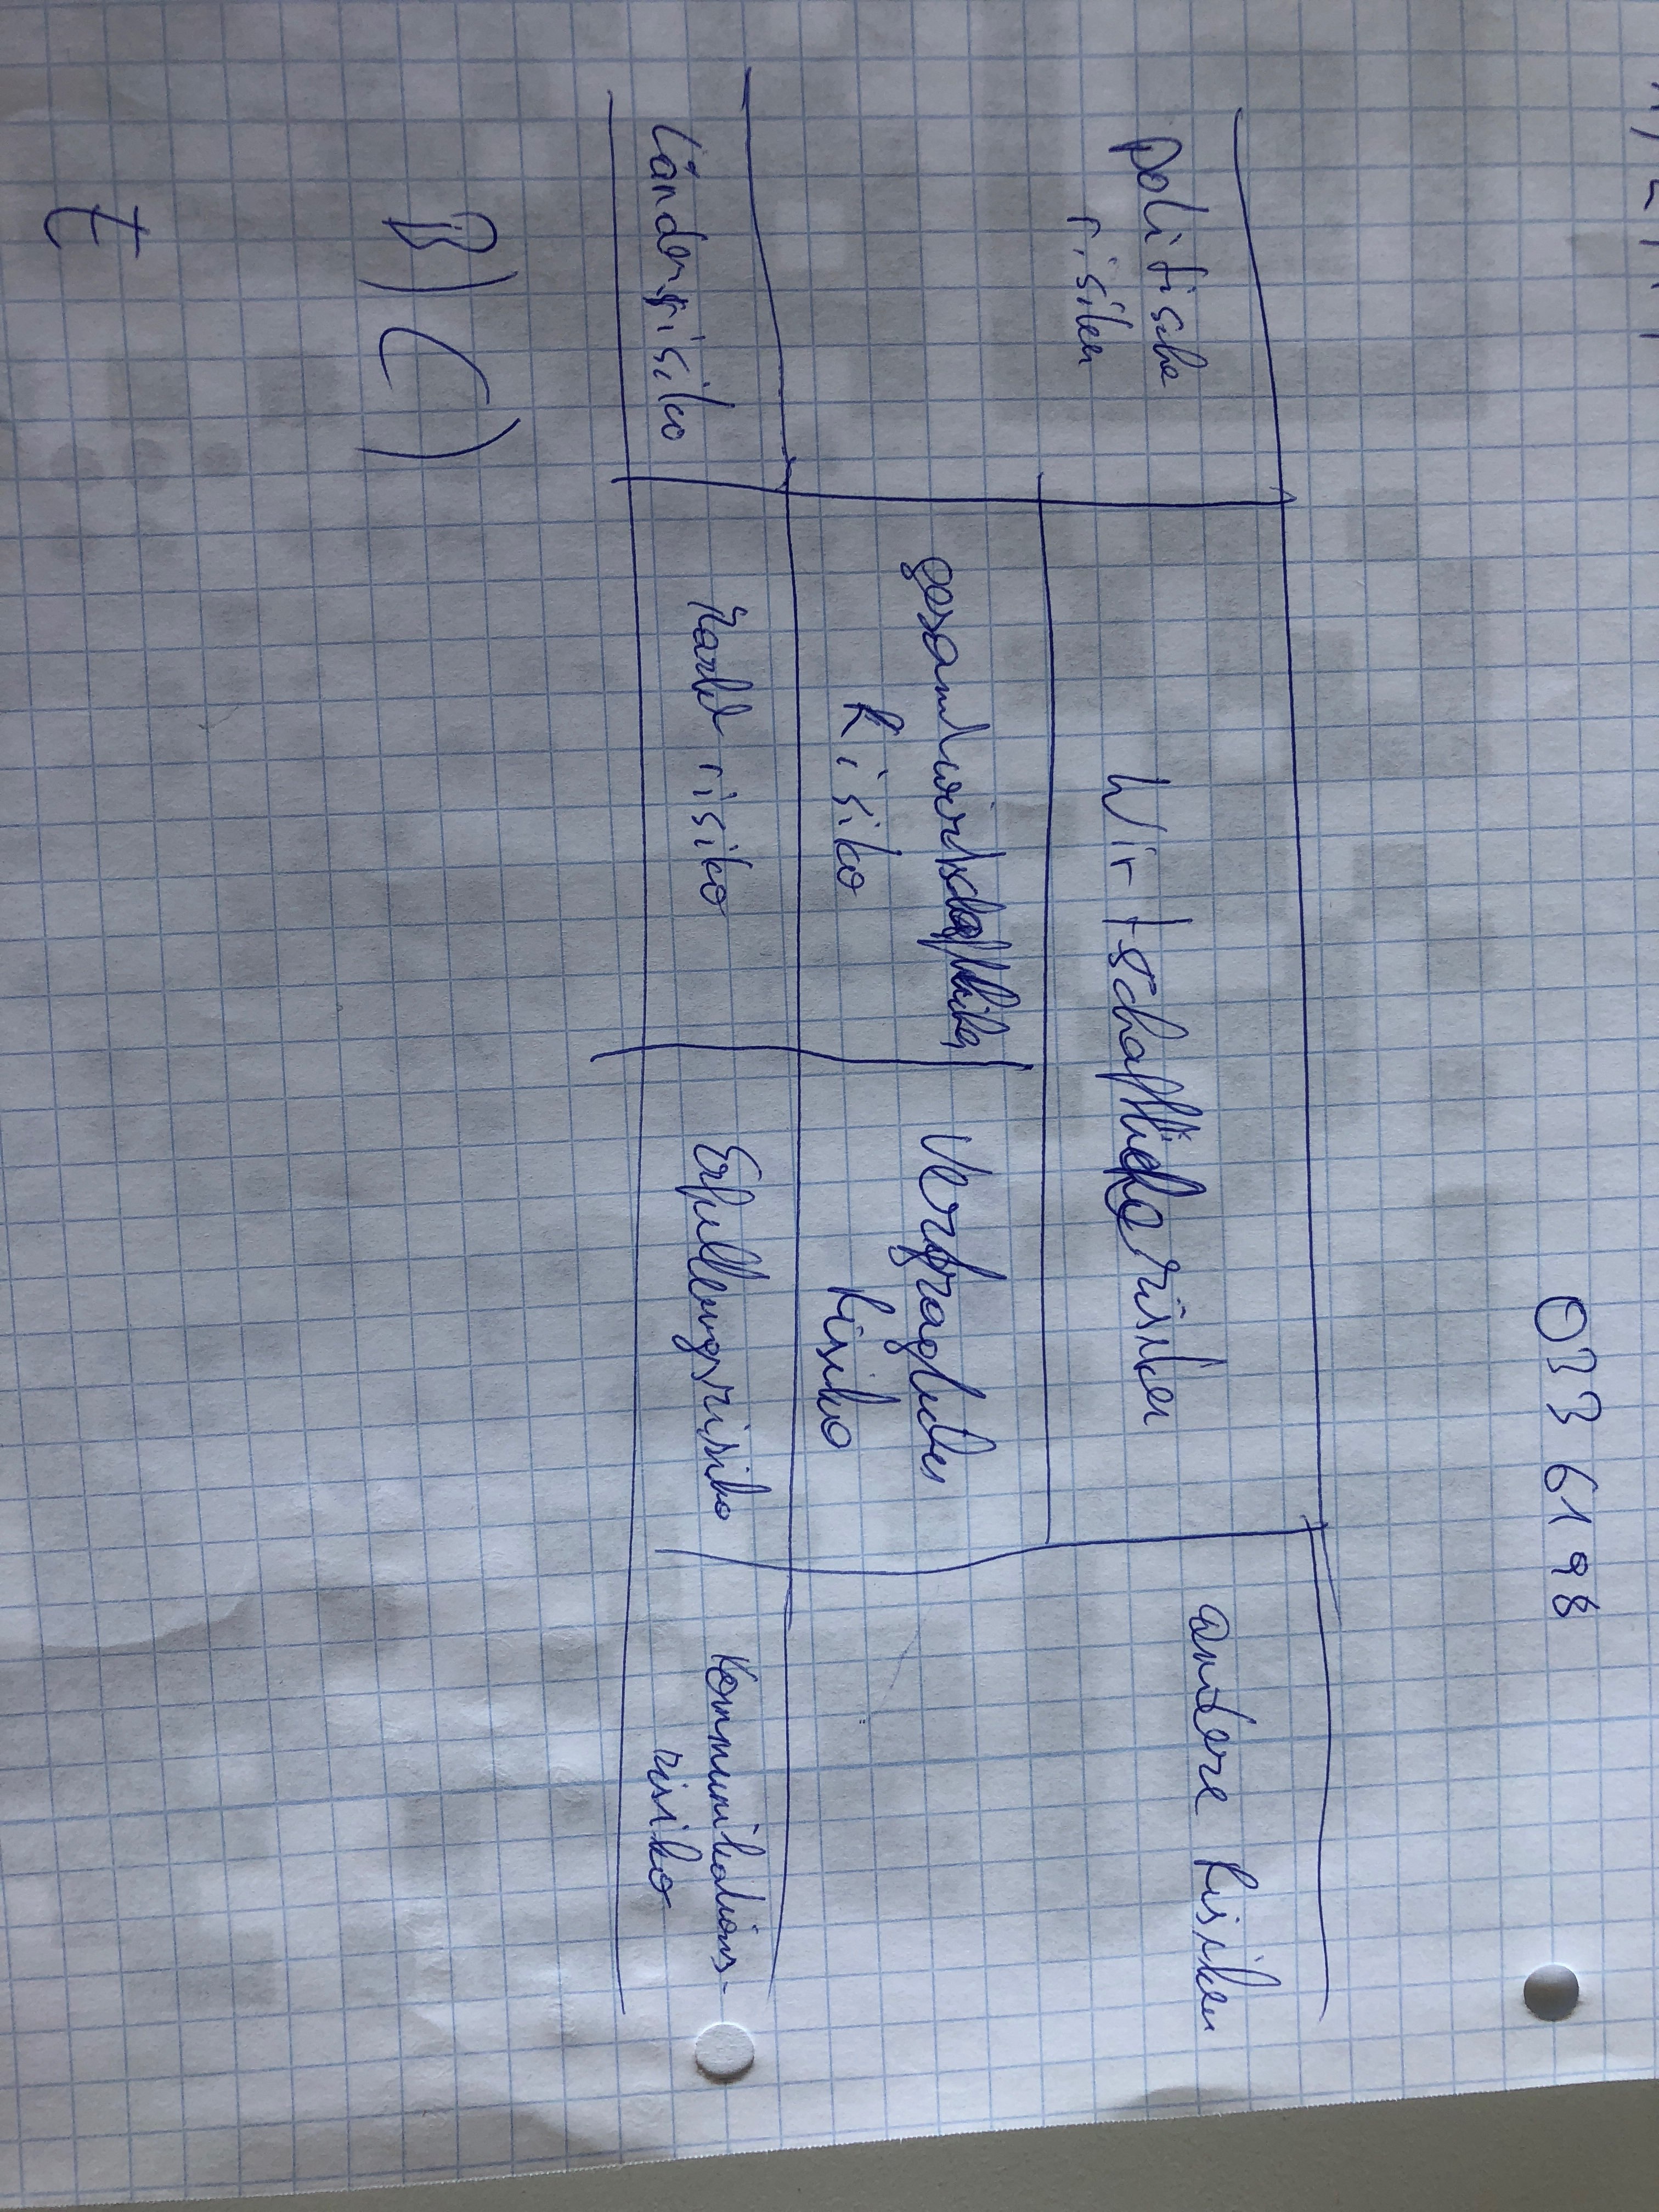 033 61 98
politische
risiken
Wirtschaftliche risiken
andere Risiken
gesamtwirtschaftliches
Risiko
Vertragliches
Risiko
Länderrisiko
Markt risiko
Erfüllungsrisiko
Kommunikations-
risiko
B) C)